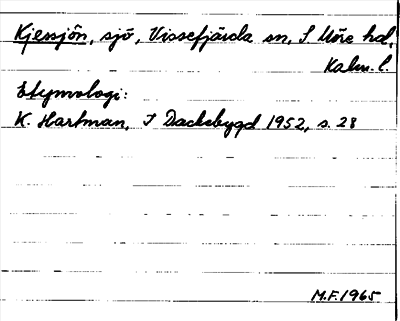 Kjessjön, sjö, Vissefjärda sn, S Möre hd,
Kalm. l.
Etymologi:
K. Hartman, I Dackebygd 1952, s. 28
M.F. 1965